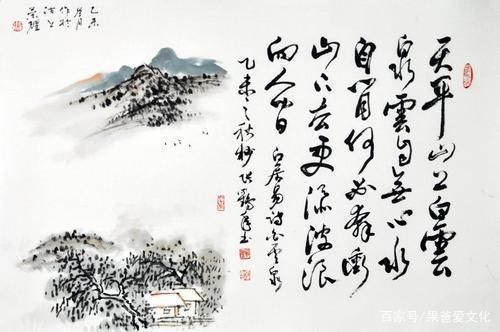 天平山上白雲
泉雲自無心水
自閒何必奔衝
山下去更添波浪
向人間 白居易詩白雲泉
乙未之秋杪 鶴年书
乙未
月
作於
百家号/果爸爱文化